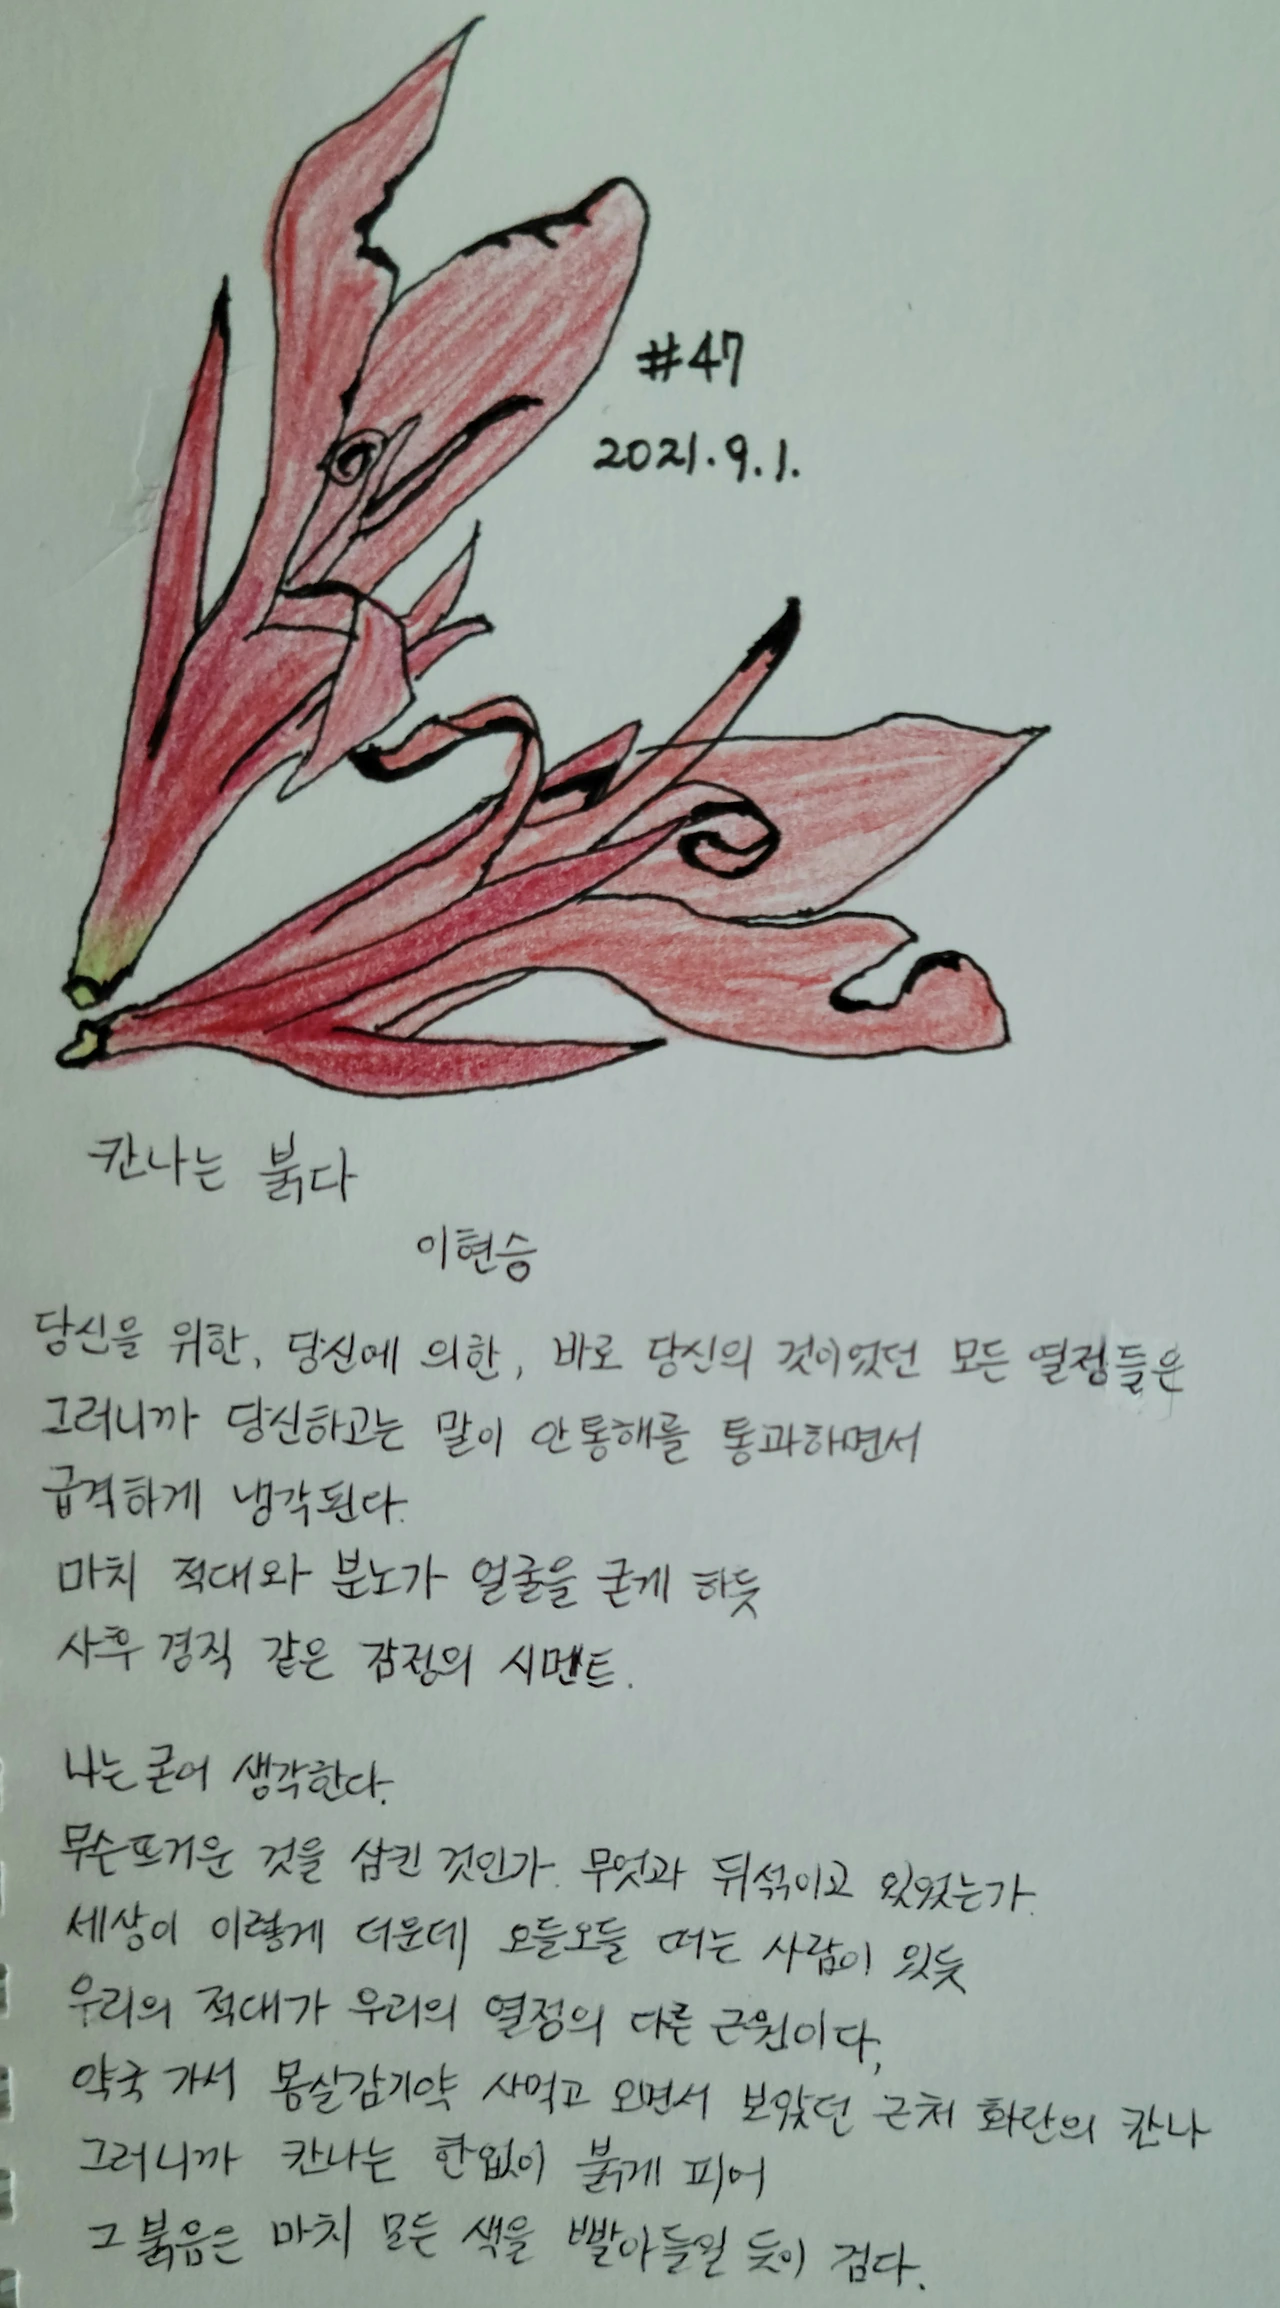 #47
2021.9.1.
칸나는 붉다
이현승
당신을 위한, 당신에 의한, 바로 당신의 것이었던 모든 열정들은
그러니까 당신하고는 말이 안통해를 통과하면서
급격하게 냉각된다.
마치 적대와 분노가 얼굴을 굳게 하듯
사후 경직 같은 감정의 시멘트.
나는 굳어 생각한다.
무슨 뜨거운 것을 삼킨 것인가. 무엇과 뒤섞이고 있었는가.
세상이 이렇게 더운데 오들오들 떠는 사람이 있듯
우리의 적대가 우리의 열정의 다른 근원이다,
약국 가서 몸살감기약 사먹고 오면서 보았던 근처 화단의 칸나
그러니까 칸나는 한없이 붉게 피어
그 붉음은 마치 모든 색을 빨아들일 듯이 검다.